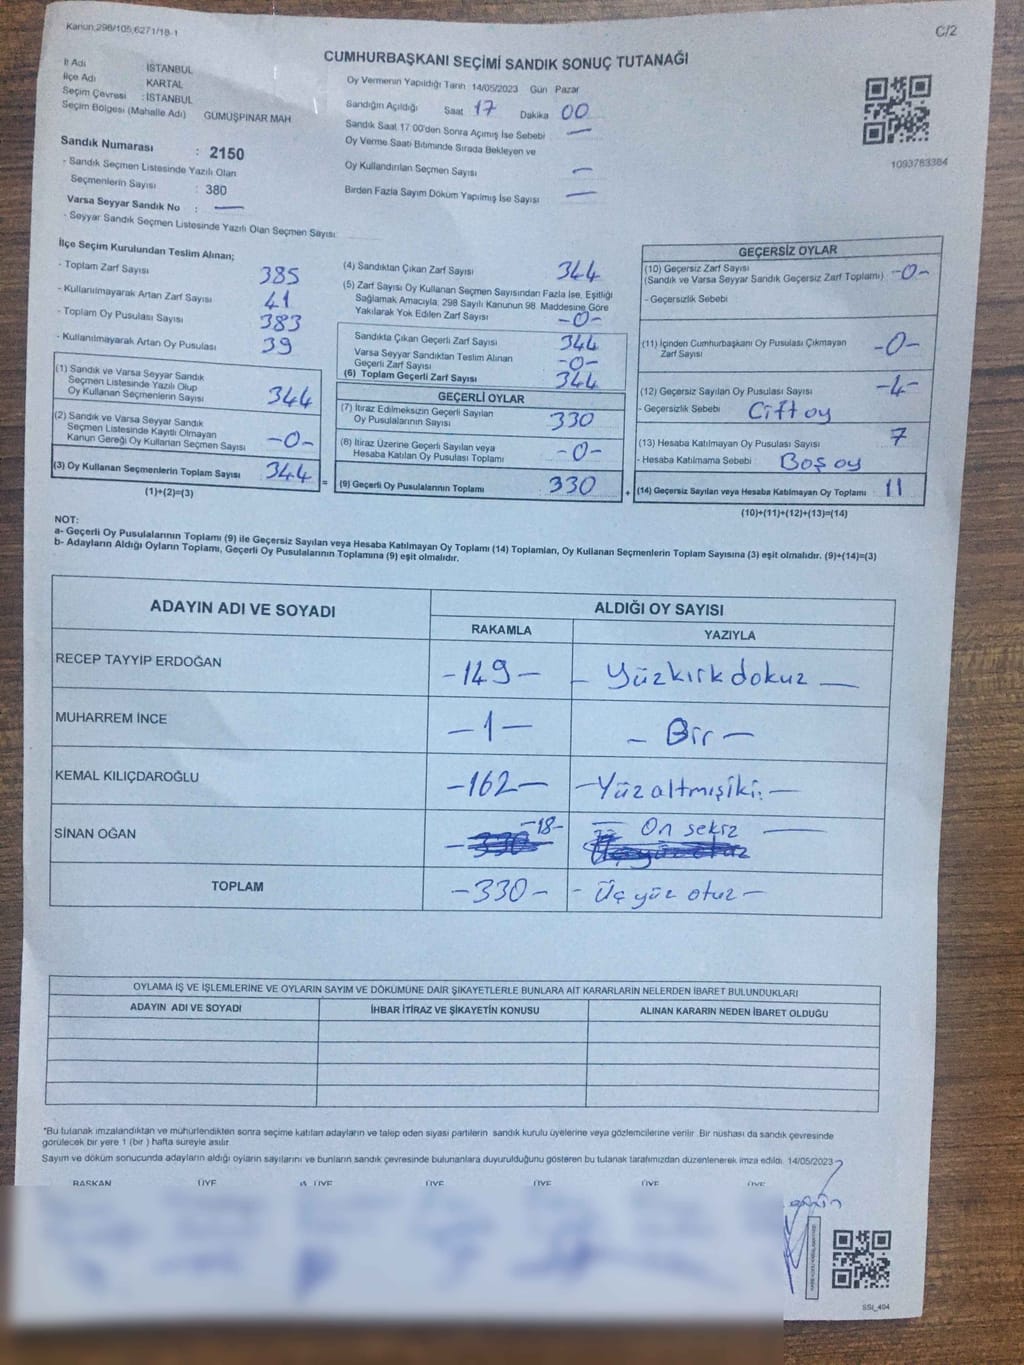 Kanun,298/105,6271/18-1
C/2
CUMHURBAŞKANI SEÇİMİ SANDIK SONUÇ TUTANAĞI
İl Adı : İSTANBUL
İlçe Adı KARTAL
Seçim Çevresi : İSTANBUL
Seçim Bölgesi (Mahalle Adı) GÜMÜŞPINAR MAH
Sandık Numarası : 2150
- Sandık Seçmen Listesinde Yazılı Olan
Seçmenlerin Sayısı : 380
Varsa Seyyar Sandık No : —
- Seyyar Sandık Seçmen Listesinde Yazılı Olan Seçmen Sayısı:
Oy Vermenin Yapıldığı Tarih 14/05/2023 Gün Pazar
Sandığın Açıldığı Saat 17 Dakika 00
Sandık Saat 17:00'den Sonra Açılmış İse Sebebi —
Oy Verme Saati Bitiminde Sırada Bekleyen ve
Oy Kullandırılan Seçmen Sayısı —
Birden Fazla Sayım Döküm Yapılmış İse Sayısı —
1093783384
İlçe Seçim Kurulundan Teslim Alınan;
- Toplam Zarf Sayısı 385
- Kullanılmayarak Artan Zarf Sayısı 41
- Toplam Oy Pusulası Sayısı 383
- Kullanılmayarak Artan Oy Pusulası 39
(1) Sandık ve Varsa Seyyar Sandık
Seçmen Listesinde Yazılı Olup
Oy Kullanan Seçmenlerin Sayısı 344
(2) Sandık ve Varsa Seyyar Sandık
Seçmen Listesinde Kayıtlı Olmayan
Kanun Gereği Oy Kullanan Seçmen Sayısı -0-
(3) Oy Kullanan Seçmenlerin Toplam Sayısı 344 =
(1)+(2)=(3)
(4) Sandıktan Çıkan Zarf Sayısı 344
(5) Zarf Sayısı Oy Kullanan Seçmen Sayısından Fazla İse, Eşitliği
Sağlamak Amacıyla, 298 Sayılı Kanunun 98. Maddesine Göre
Yakılarak Yok Edilen Zarf Sayısı -0-
Sandıkta Çıkan Geçerli Zarf Sayısı 344
Varsa Seyyar Sandıktan Teslim Alınan
Geçerli Zarf Sayısı -0-
(6) Toplam Geçerli Zarf Sayısı 344
GEÇERLİ OYLAR
(7) İtiraz Edilmeksizin Geçerli Sayılan
Oy Pusulalarının Sayısı 330
(8) İtiraz Üzerine Geçerli Sayılan veya
Hesaba Katılan Oy Pusulası Toplamı -0-
(9) Geçerli Oy Pusulalarının Toplamı 330 +
GEÇERSİZ OYLAR
(10) Geçersiz Zarf Sayısı
(Sandık ve Varsa Seyyar Sandık Geçersiz Zarf Toplamı) -0-
- Geçersizlik Sebebi
(11) İçinden Cumhurbaşkanı Oy Pusulası Çıkmayan
Zarf Sayısı -0-
(12) Geçersiz Sayılan Oy Pusulası Sayısı -4-
- Geçersizlik Sebebi Çift oy
(13) Hesaba Katılmayan Oy Pusulası Sayısı 7
- Hesaba Katılmama Sebebi Boş oy
(14) Geçersiz Sayılan veya Hesaba Katılmayan Oy Toplamı : 11
(10)+(11)+(12)+(13)=(14)
NOT:
a- Geçerli Oy Pusulalarının Toplamı (9) ile Geçersiz Sayılan veya Hesaba Katılmayan Oy Toplamı (14) Toplamları, Oy Kullanan Seçmenlerin Toplam Sayısına (3) eşit olmalıdır. (9)+(14)=(3)
b- Adayların Aldığı Oyların Toplamı, Geçerli Oy Pusulalarının Toplamına (9) eşit olmalıdır.
ADAYIN ADI VE SOYADI ALDIĞI OY SAYISI
RAKAMLA YAZIYLA
RECEP TAYYİP ERDOĞAN -149- - Yüzkırk dokuz -
MUHARREM İNCE -1- - Bir -
KEMAL KILIÇDAROĞLU -162- -Yüz altmışiki. -
SİNAN OĞAN -18- - On sekiz -
TOPLAM -330- - Üç yüz otuz -
OYLAMA İŞ VE İŞLEMLERİNE VE OYLARIN SAYIM VE DÖKÜMÜNE DAİR ŞİKAYETLERLE BUNLARA AİT KARARLARIN NELERDEN İBARET BULUNDUKLARI
ADAYIN ADI VE SOYADI İHBAR İTİRAZ VE ŞİKAYETİN KONUSU ALINAN KARARIN NEDEN İBARET OLDUĞU
*Bu tutanak imzalandıktan ve mühürlendikten sonra seçime katılan adayların ve talep eden siyasi partilerin sandık kurulu üyelerine veya gözlemcilerine verilir. Bir nüshası da sandık çevresinde
görülecek bir yere 1 (bir ) hafta süreyle asılır.
Sayım ve döküm sonucunda adayların aldığı oyların sayılarını ve bunların sandık çevresinde bulunanlara duyurulduğunu gösteren bu tutanak tarafımızdan düzenlenerek imza edildi. 14/05/2023
BAŞKAN ÜYE ÜYE ÜYE ÜYE ÜYE ÜYE
SSI_494